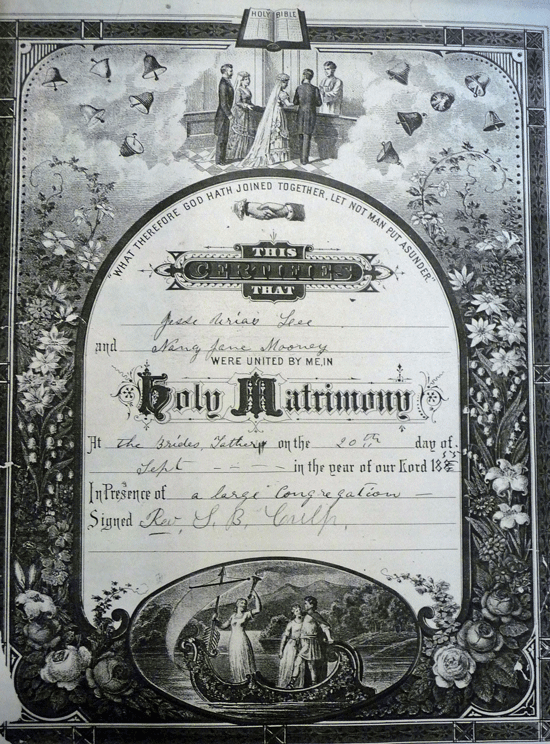 HOLY BIBLE
"WHAT THEREFORE GOD HATH JOINED TOGETHER, LET NOT MAN PUT ASUNDER"
THIS
CERTIFIES
THAT
Jesse Uriar Lee
and Nancy Jane Mooney
WERE UNITED BY ME, IN
Holy Matrimony
At the Brides, Fathers on the 20th day of
Sept - - - - in the year of our Lord 18
In Presence of a large Congregation –
Signed Rev, S. B. Culp,